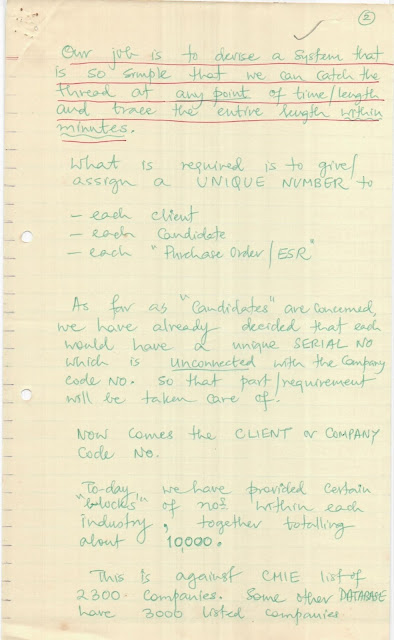 2
Our job is to devise a system that
is so simple that we can catch the
thread at any point of time/length
and trace the entire length within
minutes.
What is required is to give/
assign a UNIQUE NUMBER to
- each client
- each candidate
- each "Purchase Order/ESR"
As far as "Candidates" are concerned,
we have already decided that each
would have a unique SERIAL NO
which is unconnected with the Company
code NO. So that part/requirement
will be taken care of.
Now comes the CLIENT or COMPANY
Code No.
To-day, we have provided certain
"blocks" of nos within each
industry, together totalling
about 10,000.
This is against CMIE list of
2300 companies. Some other DATABASE
have 3000 listed companies.